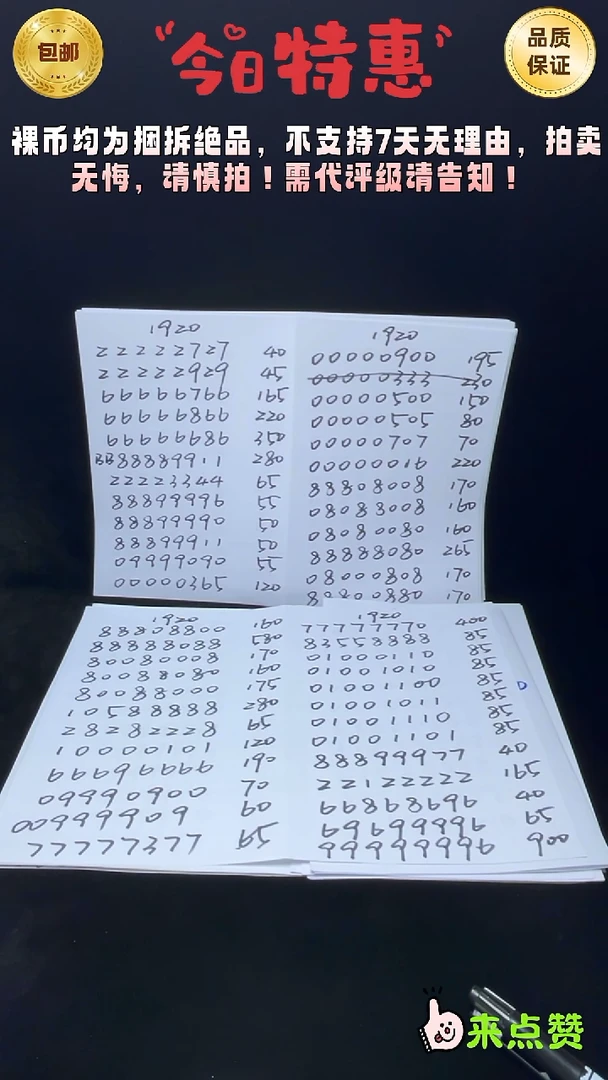 包邮
今日特惠
品质
保证
裸币均为捆拆绝品，不支持7天无理由，拍卖
无悔，请慎拍！需代评级请告知！
1920
22222727 40
22222929 45
66666766 165
66666866 220
66666686 350
BB88889911 280
22223344 65
88899996 55
88899990 50
88899911 50
09999090 55
00000365 120
1920
00000900 195
00000333 230
00000500 150
00000505 80
00000707 70
00000016 220
88808008 170
08083008 160
08080080 160
88888080 265
08000808 170
88800880 170
1920
88808800 160
88888088 580
80080008 170
80088080 160
80088000 175
10588888 280
28282228 65
10000101 120
66696666 190
09990900 70
00999909 60
77777377 165
1920
77777770 400
83558888 85
01000110 85
01001010 85
01001100 85 D
01001011 85
01001110 85
01001101 85
88899977 40
22122222 165
66868696 40
69699996 65
99999996 900
来点赞